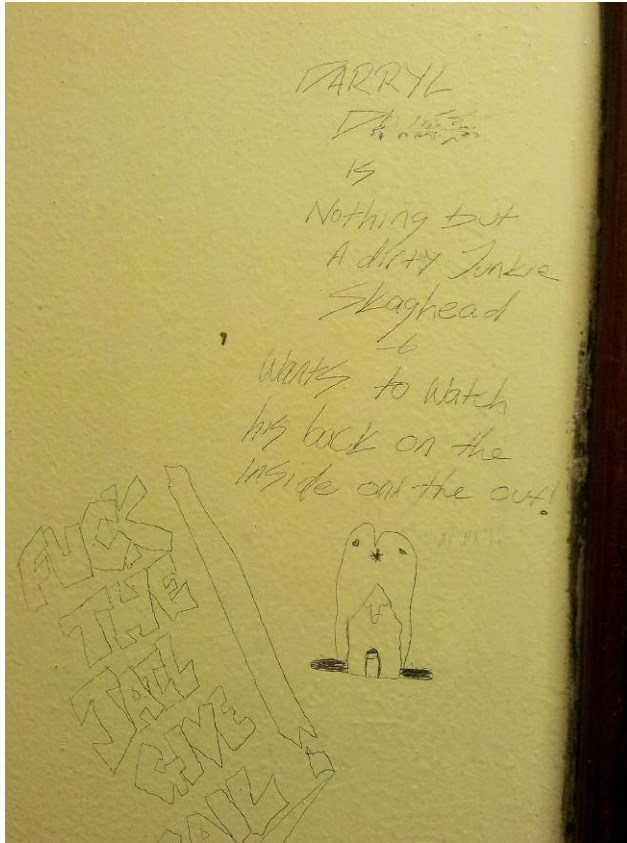 DARRYL
is
Nothing but
A dirty Junkie
Skaghead
Wants to Watch
his back on the
inside and the out!
FUCK
THE
JAIL
GIVE